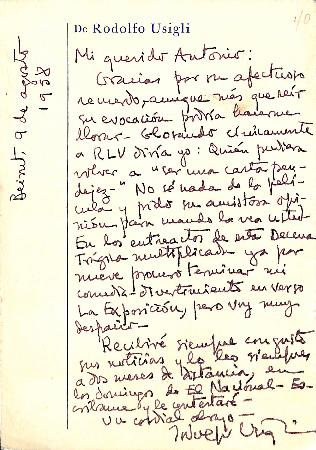 1/0
De Rodolfo Usigli
Beirut, 9 de agosto
1958
Mi querido Antonio:
Gracias por su afectuoso
recuerdo, aunque más que reir
su evocación podría hacerme
llorar. Glosando cínicamente
a RLV diría yo: Quién pudiera
volver a "ser una casta pen-
dejez." No sé nada de la pelí-
cula y pido su amistosa opi-
nión para cuando la vea usted.
En los entreactos de esta Decena
Trágica multiplicada ya por
nueve procuro terminar mi
comedia-divertimiento en verso
La Exposición, pero voy muy
despacio.
Recibiré siempre con gusto
sus noticias y lo leo siempre
a dos meses de distancia, en
los domingos de El Nacional. Es-
críbame y le contestaré.
Un cordial abrazo.
Rodolfo Usigli